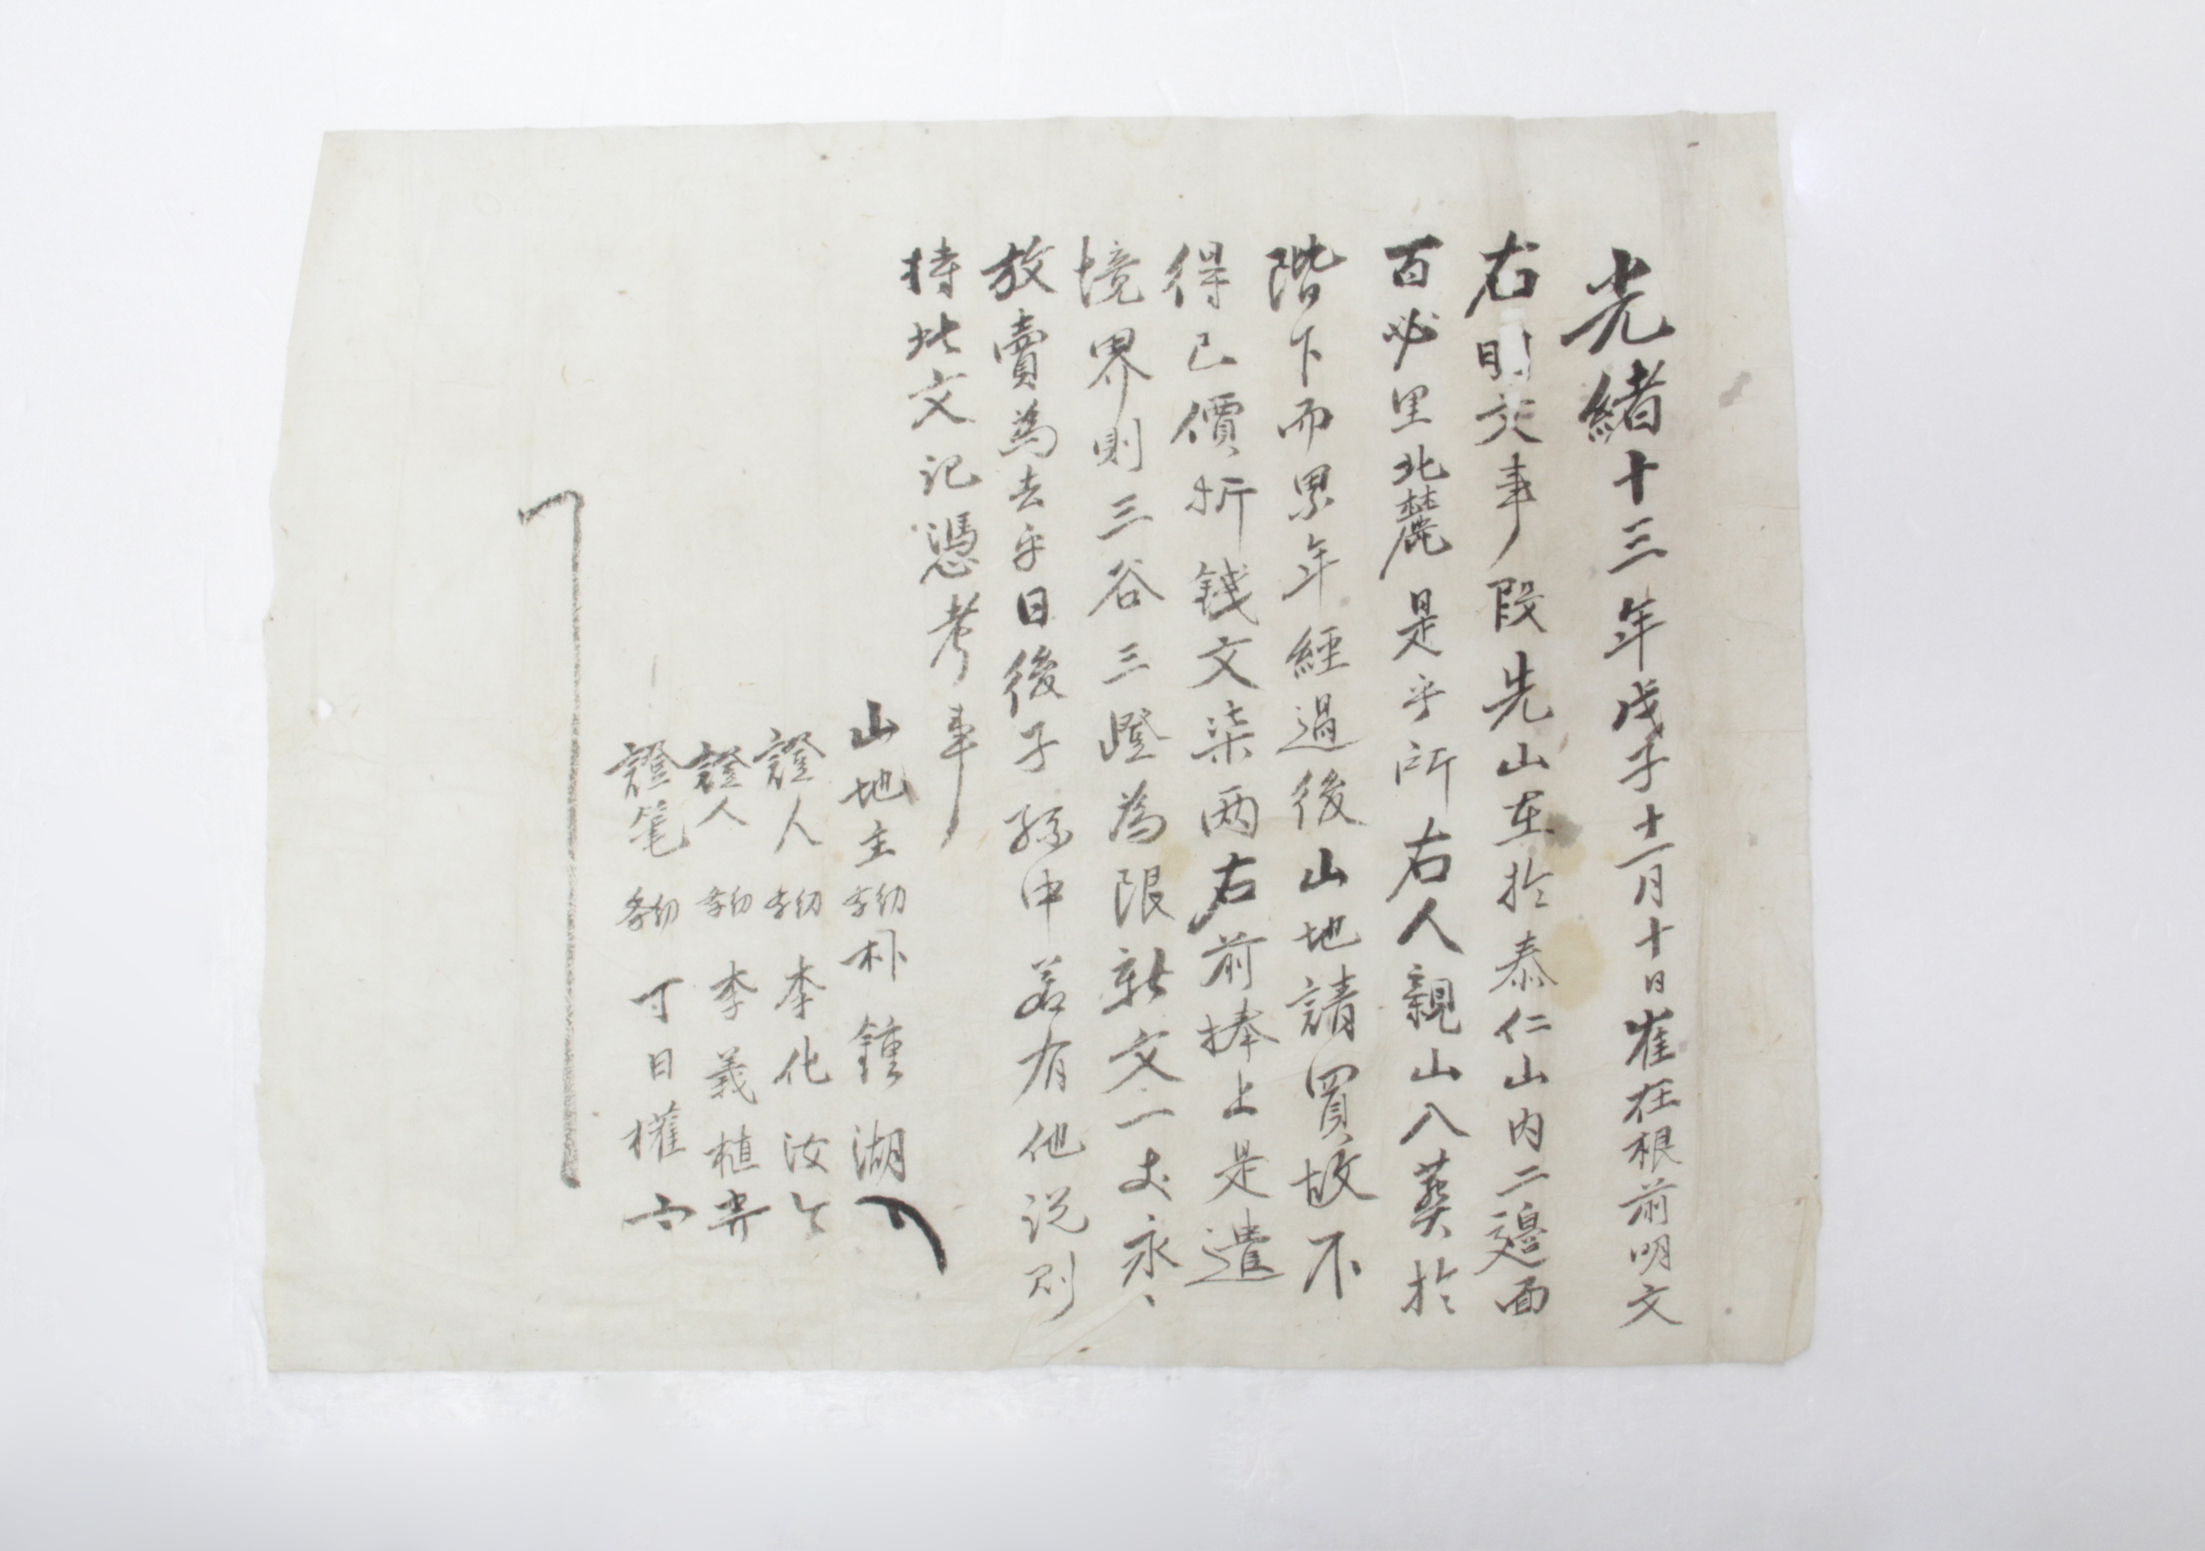 光緒十三年戊子十二月十日崔在根前明文
右明文事段先山在於泰仁山內二邊面
百必里北麓是乎所右人親山入葬於
階下而累年經過後山地請買故不
得已價折錢文柒兩右前捧上是遣
境界則三谷三嶝為限新文一丈永〻
放賣為去乎日後子孫中若有他說則
持此文記憑考事
山地主幼學朴鍾湖
證人幼學李化汝
證人幼學李義植
證筆幼學丁日權